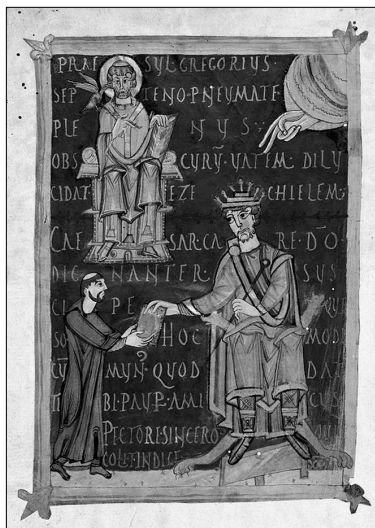 PRAE SVL GREGORIVS·
SEP TENO·PNEUMATE
PLE NVS·
OBS CVRṼ·VATEM·DILV
CIDAT· EZE CHIELEM·
CAE SAR·CA RE·D̄O·
DIG NANTER· SVS
CI PE
HOC MOD
CṼ MVN· QVOD DA
BI·PAVP· AMI CVS
PECTORE SINCERO
COLIT INDICE